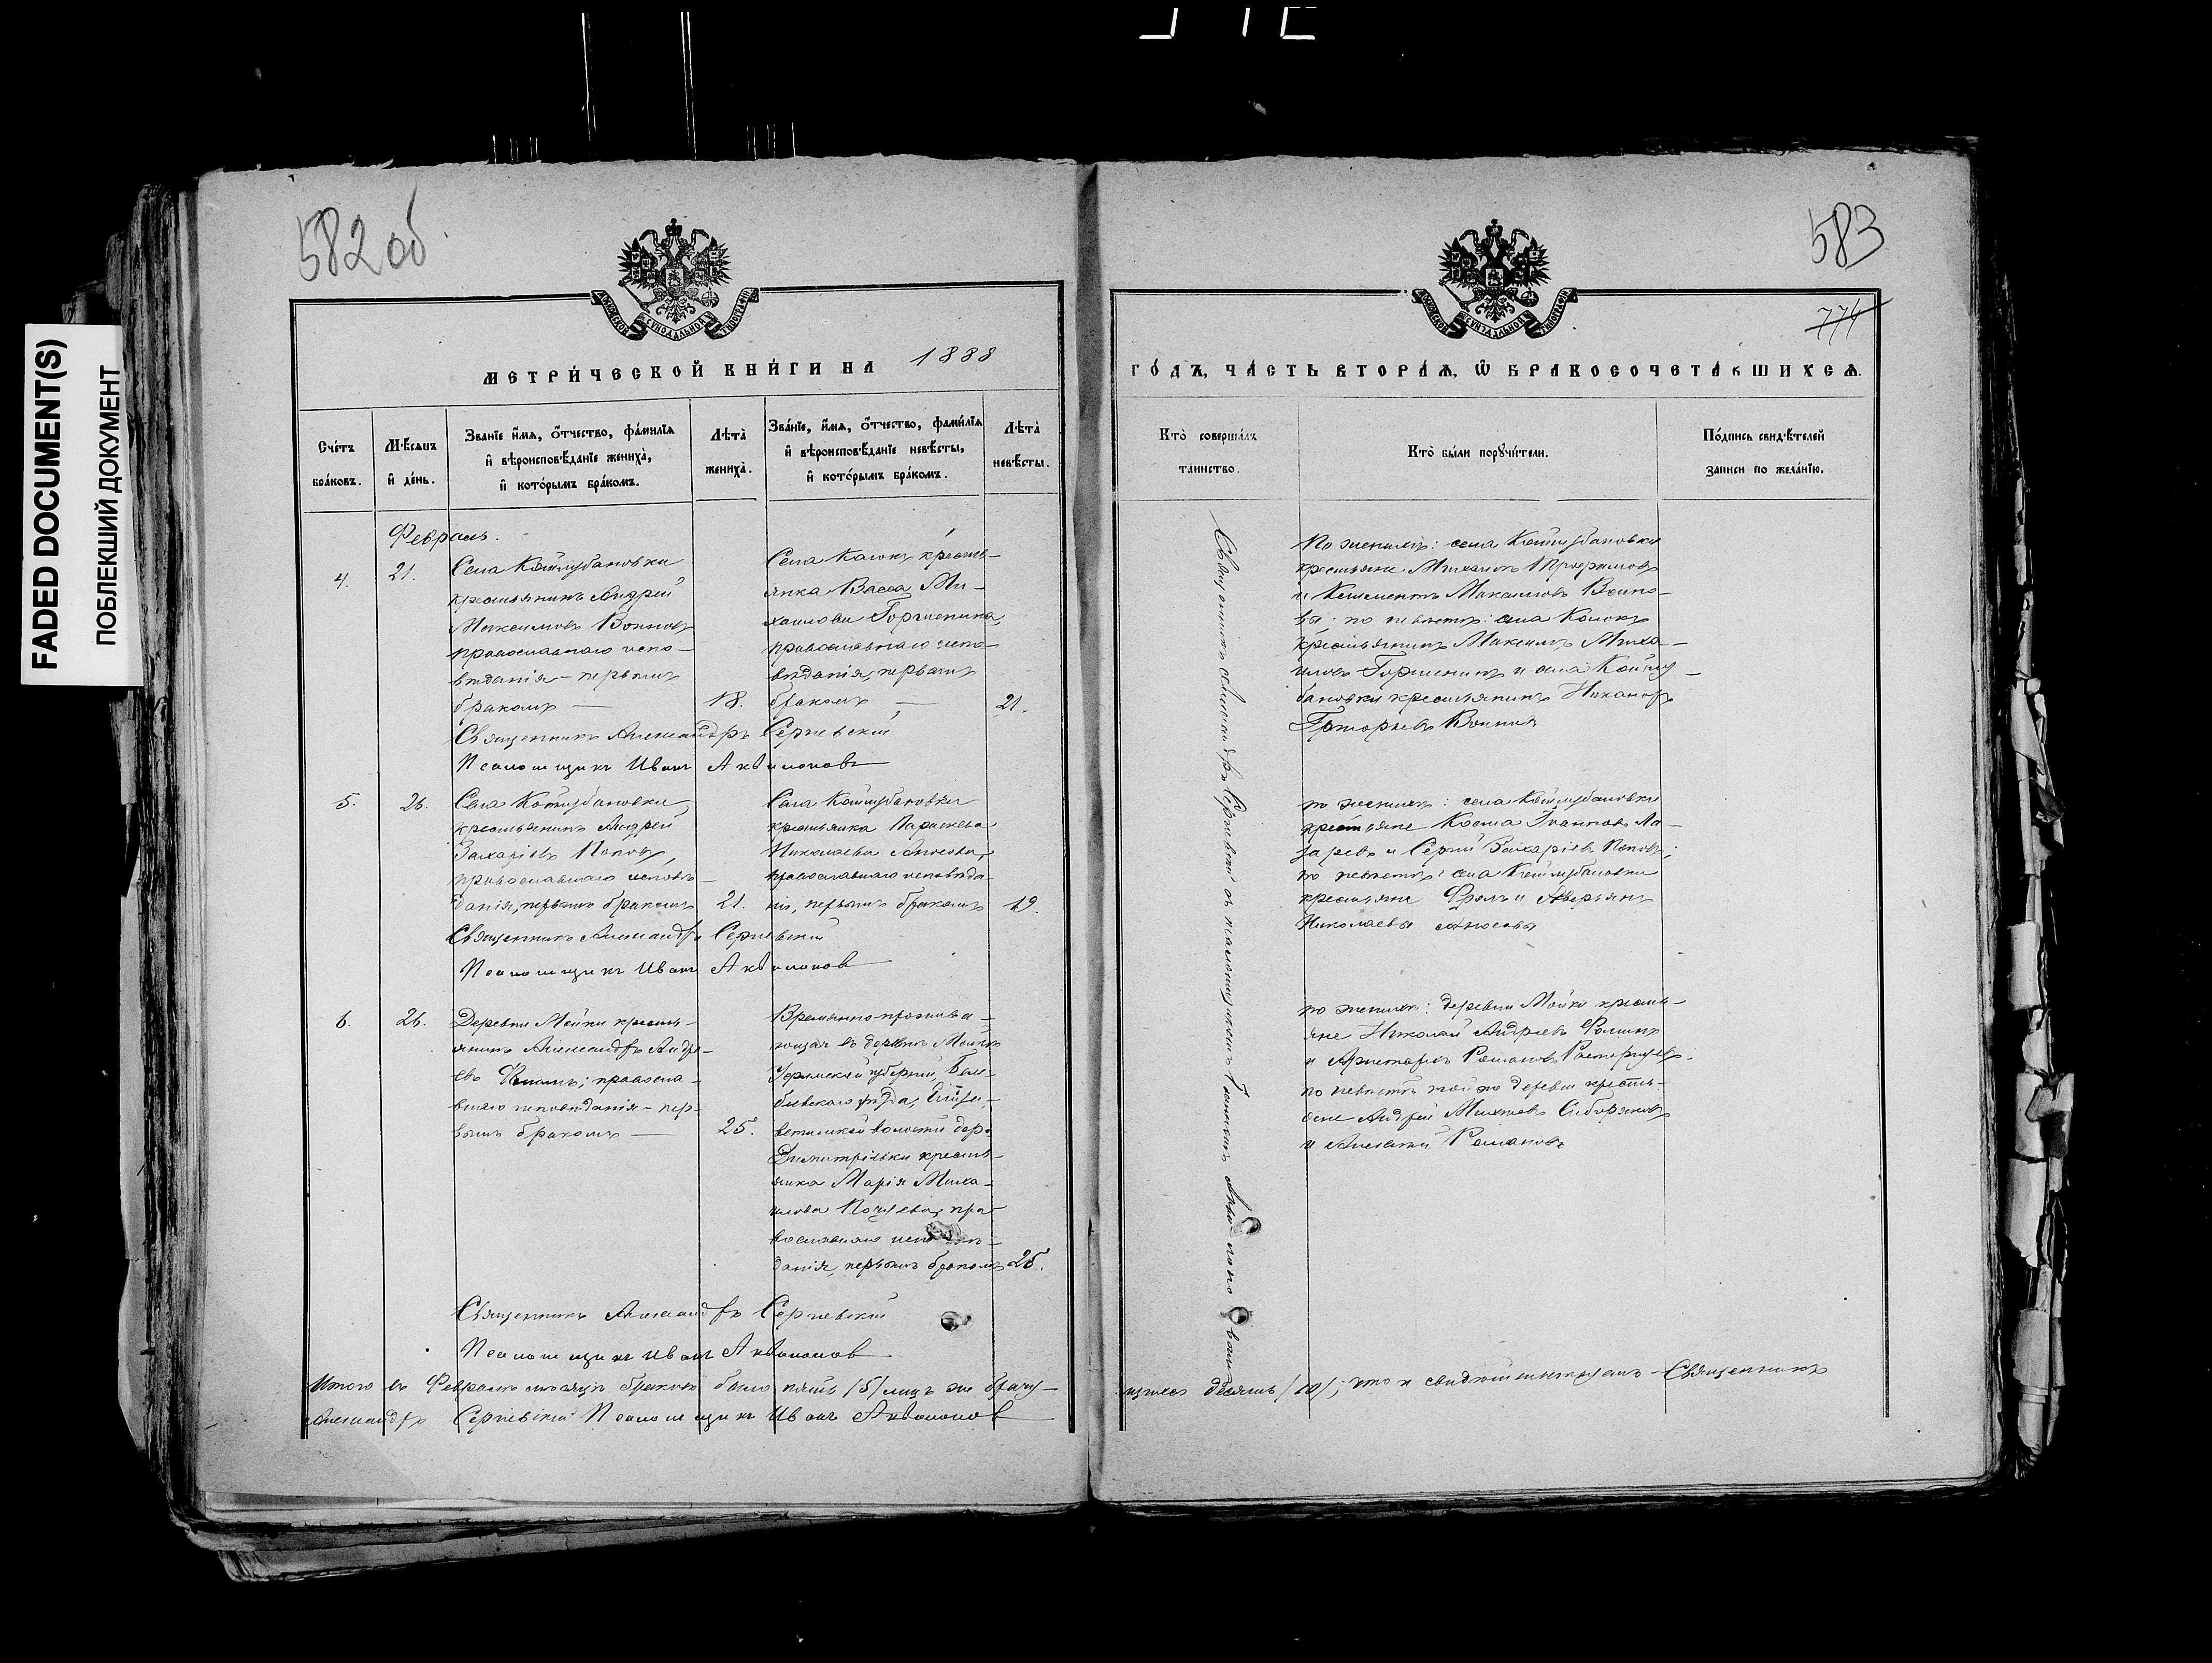 FADED DOCUMENT(S)
ПОБЛЕКШИЙ ДОКУМЕНТ
582 об
МОСКОВСКОЙ СѴНОДАЛЬНОЙ ТИПОГРАФІИ
МЕТРИ́ЧЕСКОЙ КНИ́ГИ НА 1888
Сче́тъ бра́ковъ.
М҃ѣсяцъ и҆ де́нь.
Зва́нїе и҆́мѧ, ѻ҆́тчество, фами́лїѧ
и҆ вѣроисповѣ́данїе жениха̀,
и҆ кото́рымъ бра́комъ.
Лѣта̀ жениха̀.
Зва́нїе, и҆́мѧ, ѻ҆́тчество, фами́лїѧ
и҆ вѣроисповѣ́данїе невѣ́сты,
и҆ кото́рымъ бра́комъ.
Лѣта̀ невѣ́сты.
Февраль.
4. 21.
Села
крестьянинъ Андрей
Максимовъ Воиновъ
православнаго испо-
вѣданія - первымъ
бракомъ —
18.
Села Калокъ кресть-
янка Васса Ми-
хаилова Горшенина,
православнаго испо-
вѣданія, первымъ
бракомъ —
21.
Священникъ Александръ Сергіевскій
Псаломщикъ Иванъ Аквилоновъ
5. 26.
Села
крестьянинъ Андрей
Захаріевъ Поповъ,
православнаго исповѣ-
данія, первымъ бракомъ
21.
Села
крестьянка Параскева
Николаева Аносова,
православнаго исповѣда-
нія, первымъ бракомъ
19.
Священникъ Александръ Сергіевскій
Псаломщикъ Иванъ Аквилонов
6. 26.
Деревни Мойки кресть-
янинъ Александръ Андре-
евъ православ-
наго исповѣданія - пер-
вымъ бракомъ —
25.
Временно прожива-
ющая въ деревнѣ Мойкѣ
губерніи,
уѣзда,
волости дер.
Димитріевки кресть-
янка Марія Миха-
илова пра-
вославнаго исповѣ-
данія, первымъ бракомъ
25.
Священникъ Александръ Сергіевскій
Псаломщикъ Иванъ Аквилонов
Итого въ Февралѣ мѣсяцѣ браковъ было пять /5/ лицъ же брачу-
Александръ Сергіевскій Псаломщикъ Иванъ Аквилонов
583
774
МОСКОВСКОЙ СѴНОДАЛЬНОЙ ТИПОГРАФІИ
ГО́ДЪ, ЧА́СТЬ ВТОРА́Ѧ, Ѿ БРАКОСОЧЕТА́ВШИХСѦ.
Кто̀ соверша́лъ
та́инство.
Кто̀ бы́ли порꙋчи́тели.
По́дпись свидѣ́телей
за́писи по жела́нїю.
Священникъ Александръ Сергіевскій съ псаломщикомъ Іоанномъ Аквилоновымъ
По женихѣ: села
крестьяне Михаилъ
и Климентъ Максимовъ Воино-
вы; по невѣстѣ: села Калокъ
крестьянинъ Максимъ Миха-
иловъ Горшенинъ и села
крестьянинъ Никаноръ
Григорьевъ Воинов
по женихѣ: села
крестьяне Косма Іоанновъ Ла-
заревъ и Сергій Захаріевъ Поповъ;
по невѣстѣ: села
крестьяне Фролъ и Аверьянъ
Николаевы Аносовы
по женихѣ: деревни Мойки кресть-
яне Николай Андреевъ
и Аристархъ Романовъ
по невѣстѣ той же деревни кресть-
яне Андрей Сибиряковъ
и Алексѣй Романовъ
щихся десять /10/; что и свидѣтельствуемъ Священникъ